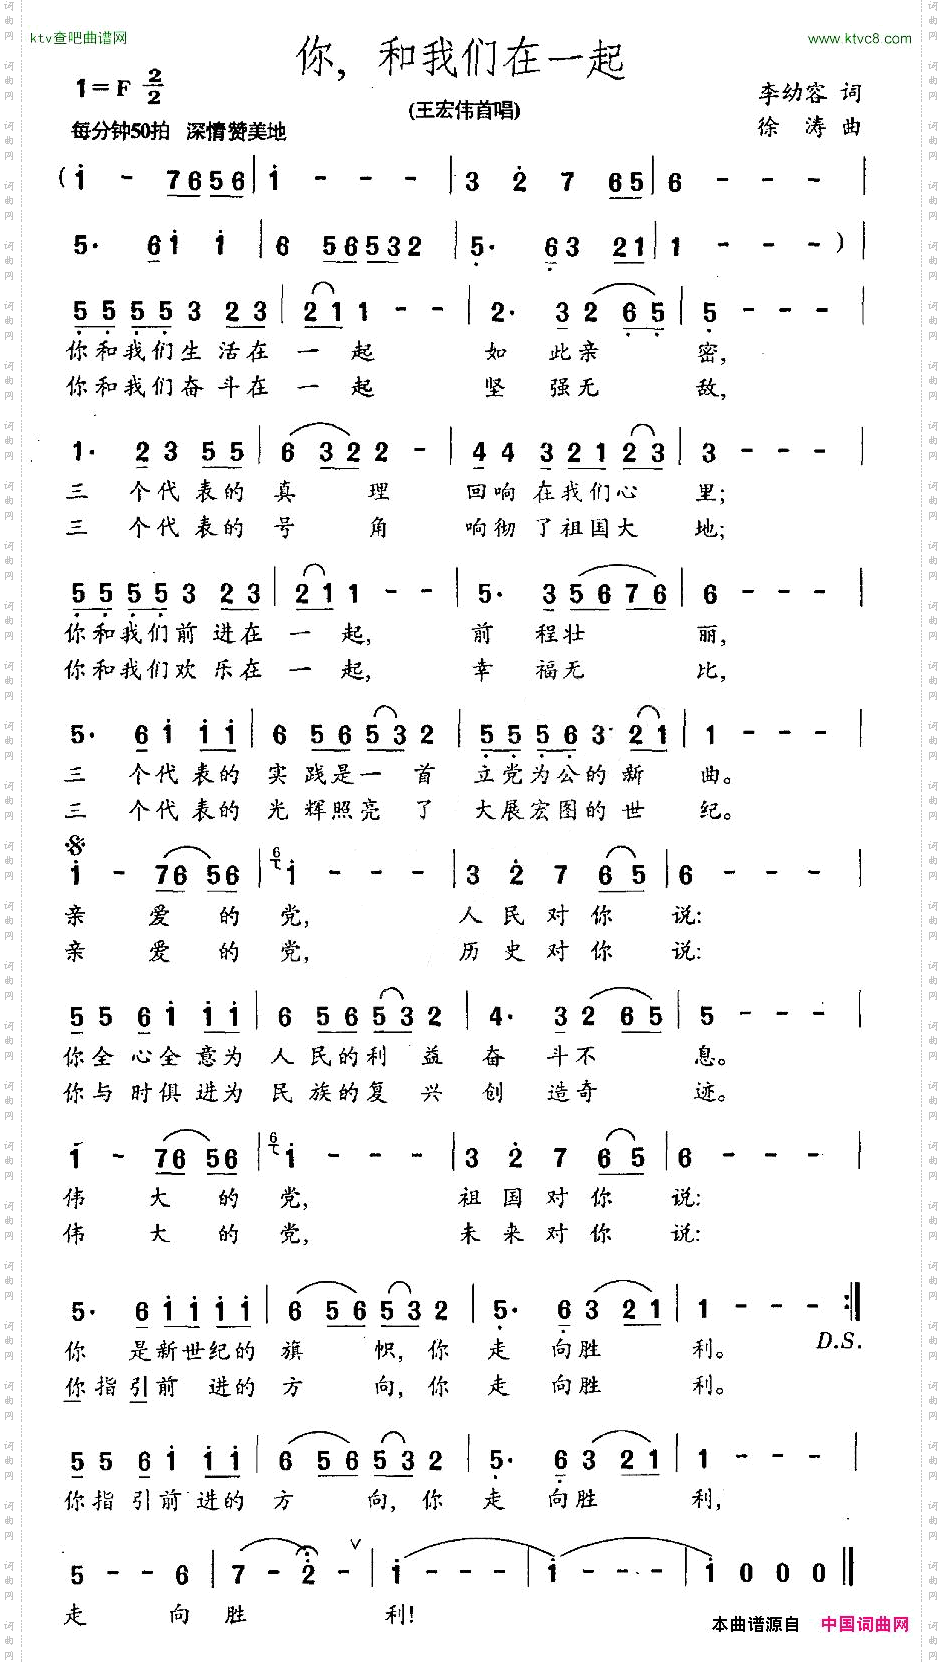 ktv查吧曲谱网
www.ktvc8.com
你，和我们在一起
1=F 2/2
(王宏伟首唱)
李幼容 词
徐 涛 曲
每分钟50拍 深情赞美地
(i - 7656 | i - - - | 3 2 7 65 | 6 - - - |
5· 6i i | 6 56532 | 5· 63 21 | 1 - - - ) |
55553 23 | 211 - - | 2· 3265 | 5 - - - |
你和我们生 活在 一 起 如 此亲 密,
你和我们奋 斗在 一 起 坚 强无 敌,
1· 23 55 | 6 322 - | 44 32123 | 3 - - - |
三 个代 表的 真 理 回响 在我们心 里;
三 个代 表的 号 角 响彻 了祖国大 地;
55553 23 | 211 - - | 5· 35676 | 6 - - - |
你和我们前 进在 一 起, 前 程壮 丽,
你和我们欢 乐在 一 起, 幸 福无 比,
5· 6i ii | 6 56532 | 55563· 21 | 1 - - - |
三 个代 表的 实 践是一 首 立党为公的 新 曲。
三 个代 表的 光 辉照亮 了 大展宏图的 世 纪。
i - 76 56 | 6 i - - - | 3 2 7 65 | 6 - - - |
亲 爱 的 党, 人 民 对 你 说:
亲 爱 的 党, 历 史 对 你 说:
55 6i ii | 6 56532 | 4· 32 65 | 5 - - - |
你全 心全 意为 人 民的利 益 奋 斗不 息。
你与 时俱 进为 民 族的复 兴 创 造奇 迹。
i - 76 56 | 6 i - - - | 3 2 7 65 | 6 - - - |
伟 大 的 党, 祖 国 对 你 说:
伟 大 的 党, 未 来 对 你 说:
5· 6iiii | 6 56532 | 5· 63 21 | 1 - - - :|
你 是新世纪的 旗 帜, 你 走 向胜 利。 D.S.
你指引前 进的 方 向, 你 走 向胜 利。
55 6i ii | 6 56532 | 5· 63 21 | 1 - - - |
你指 引前 进的 方 向, 你 走 向胜 利,
5 - - 6 | 7 - 2 - | i - - - | i - - - | i 0 0 0 ||
走 向 胜 利!
本曲谱源自 中国词曲网